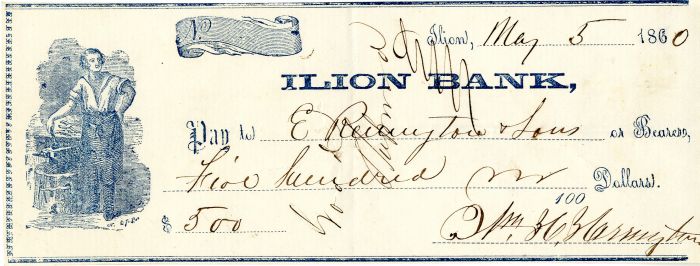 No.
Ilion, May 5 1860
ILION BANK,
Pay to E Remington & Sons or Bearer,
Five hundred no/100 Dollars.
$ 500
Wm H. Harrington